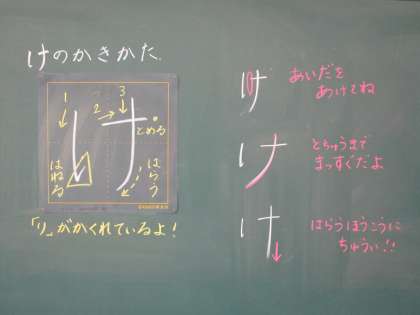 けのかきかた.
1
2
3
け
とめる
はねる
はらう
「り」がかくれているよ!
け
あいだを
あけてね
け
とちゅうまで
まっすぐだよ
け
はらうほうこうに
ちゅうい!!